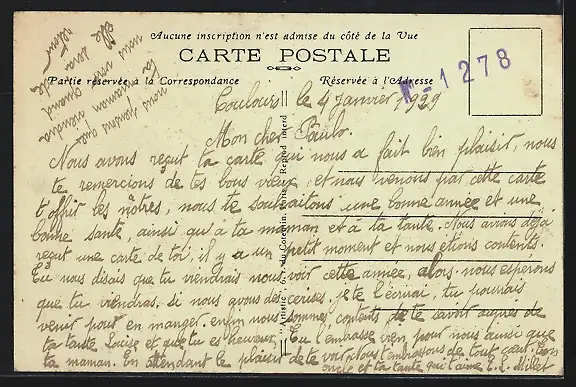 Aucune inscription n'est admise du côté de la Vue
CARTE POSTALE
Partie réservée à la Correspondance
Réservée à l'Adresse
-1278
le 4 Janvier 1929
Mon cher Paulo.
Nous avons reçut ta carte qui nous a fait bien plaisir, nous
te remercions de tes bons vœux, et nous venons par cette carte
t'offrir les nôtres, nous te souhaitons une bonne année et une
bonne santé, ainsi qu'à ta maman et à ta tante. Nous avions déjà
reçut une carte de toi, il y a un petit moment et nous étions contents.
Tu nous disais que tu viendrais nous voir cette année, alors nous espérons
que tu viendras. si nous avons des cerises. je te l'écrirai, tu pourais
venir pour en manger. enfin nous sommes contents de te savoir auprès de
ta tante Louise et que tu es heureux, Tu l'embrasse bien pour nous ainsi que
ta maman. En attendant le plaisir de te voir. Nous t'embrassons de tout cœur. Ton
oncle et ta tante qui t'aime Millet
nous
ta maman viendra
nous voir quand
elle sera de